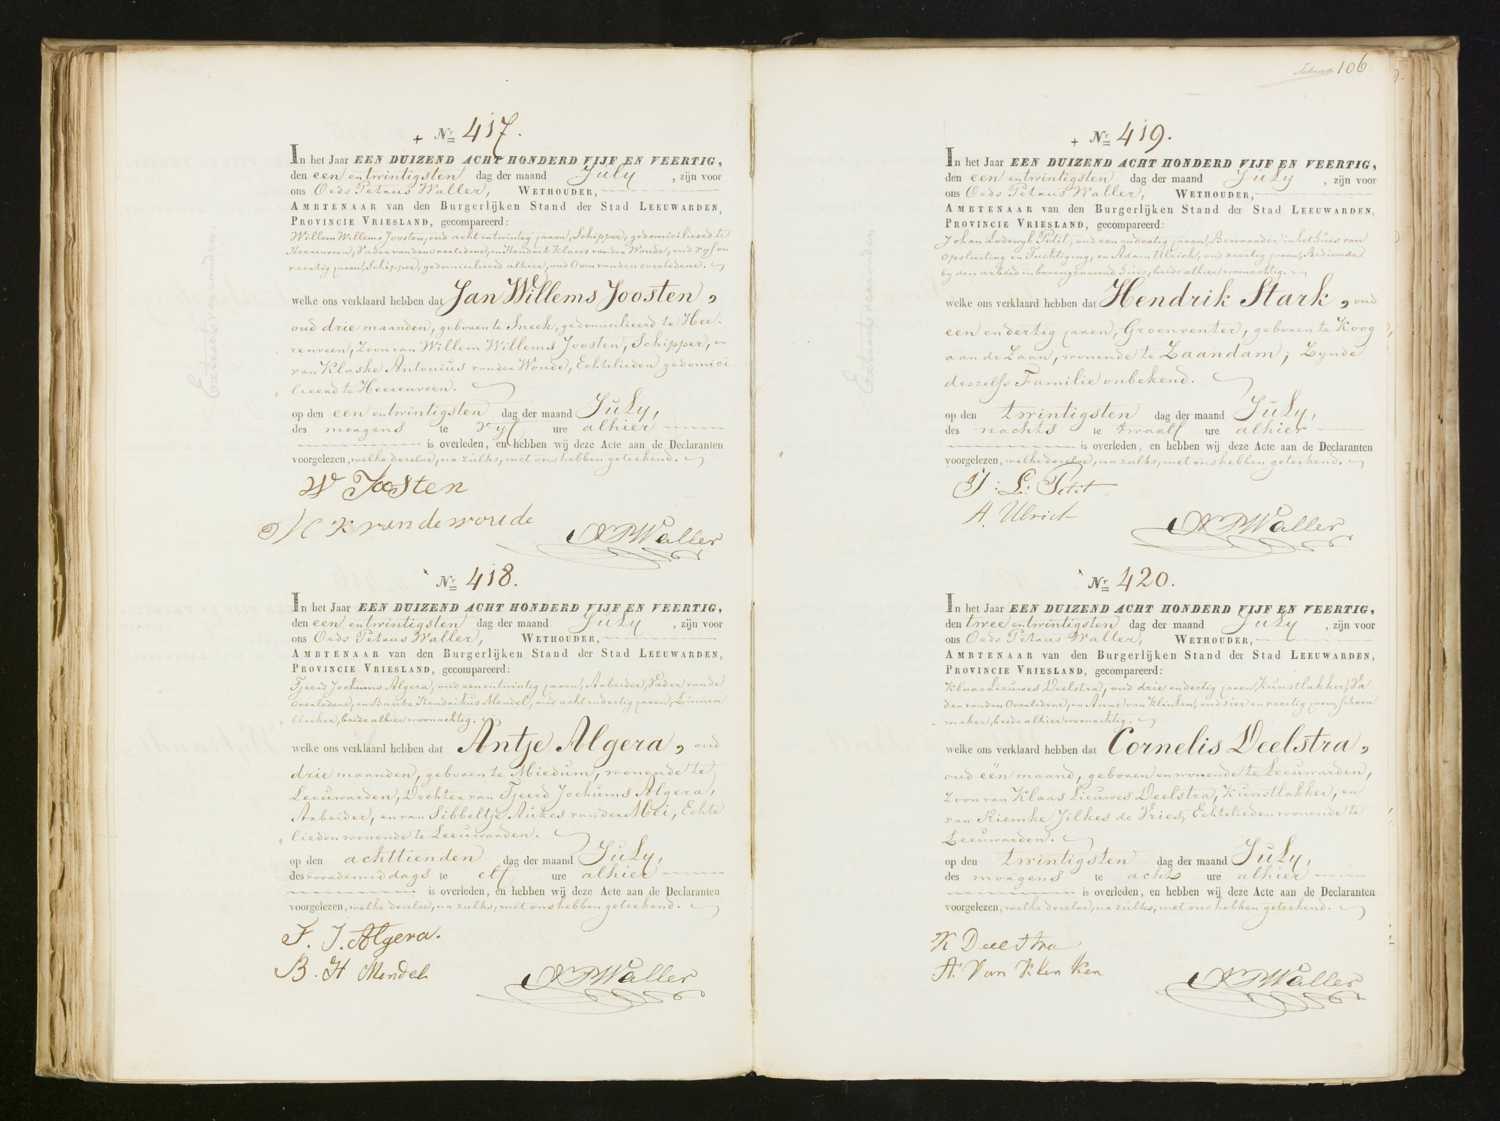 Nr. 417.
In het Jaar EEN DUIZEND ACHT HONDERD VIJF EN VEERTIG,
den een en twintigsten dag der maand July, zijn voor
ons Oeds Petrus Waller, WETHOUDER,
AMBTENAAR van den Burgerlijken Stand der Stad LEEUWARDEN,
PROVINCIE VRIESLAND, gecompareerd:
Willem Willems Joosten, oud acht en twintig jaren, Schipper, gedomicilieerd te
Heerenveen, Vader van den overledene, en Hendrik Klazes van der Woude, oud vijf en
veertig jaren, Schipper, gedomicilieerd alhier, oud Oom van den overledene.
welke ons verklaard hebben dat Jan Willems Joosten,
oud drie maanden, geboren te Sneek, gedomicilieerd te Hee-
renveen, Zoon van Willem Willems Joosten, Schipper, en
van Klaske Antonius van der Woude, Echtelieden gedomici
lieerd te Heerenveen.
op den een en twintigsten dag der maand July,
des morgens te vijf ure alhier
is overleden, en hebben wij deze Acte aan de Declaranten
voorgelezen, welke dezelve, na zulks, met ons hebben geteekend.
W Joosten
H K van de woude
OPWaller
Nr. 418.
In het Jaar EEN DUIZEND ACHT HONDERD VIJF EN VEERTIG,
den een en twintigsten dag der maand July, zijn voor
ons Oeds Petrus Waller, WETHOUDER,
AMBTENAAR van den Burgerlijken Stand der Stad LEEUWARDEN,
PROVINCIE VRIESLAND, gecompareerd:
Tjeerd Jochums Algera, oud een en twintig jaren, Arbeider, Vader van de
Overledene, en Bauke Hendrikus Mendel, oud acht en dertig jaren, Linnen
bleeker, beide alhier woonachtig.
welke ons verklaard hebben dat Antje Algera, oud
drie maanden, geboren te Miedum, wonende te
Leeuwarden, Dochter van Tjeerd Jochums Algera,
Arbeider, en van Sibbeltje Aukes van der Mei, Echte
lieden wonende te Leeuwarden.
op den achttienden dag der maand July,
des voormiddags te elf ure alhier
is overleden, en hebben wij deze Acte aan de Declaranten
voorgelezen, welke dezelve, na zulks, met ons hebben geteekend.
T. J. Algera.
B. H Mendel
OPWaller
106
Nr. 419.
In het Jaar EEN DUIZEND ACHT HONDERD VIJF EN VEERTIG,
den een en twintigsten dag der maand July, zijn voor
ons Oeds Petrus Waller, WETHOUDER,
AMBTENAAR van den Burgerlijken Stand der Stad LEEUWARDEN,
PROVINCIE VRIESLAND, gecompareerd:
Johan Lodewyk Petit, oud een en dertig jaren, Bewaarder in het huis van
Opsluiting en Tuchtiging, en Adam Ulrich, oud veertig jaren, Bediende
by den arbeid in bovengenoemd huis, beide alhier woonachtig.
welke ons verklaard hebben dat Hendrik Stark, oud
een en dertig jaren, Groenventer, geboren te Koog
aan de Zaan, wonende te Zaandam, zynde
deszelfs Familie onbekend.
op den twintigsten dag der maand July,
des nachts te twaalf ure alhier
is overleden, en hebben wij deze Acte aan de Declaranten
voorgelezen, welke dezelve, na zulks, met ons hebben geteekend.
J: L: Petit
A. Ulrich
OPWaller
Nr. 420.
In het Jaar EEN DUIZEND ACHT HONDERD VIJF EN VEERTIG,
den twee en twintigsten dag der maand July, zijn voor
ons Oeds Petrus Waller, WETHOUDER,
AMBTENAAR van den Burgerlijken Stand der Stad LEEUWARDEN,
PROVINCIE VRIESLAND, gecompareerd:
Klaas Lieuwes Deelstra, oud drie en dertig jaren, Kunstlakker, Va
der van den Overledene, en Anne van Klinken, oud vier en veertig jaren, Schoen
maker, beide alhier woonachtig.
welke ons verklaard hebben dat Cornelis Deelstra,
oud één maand, geboren en wonende te Leeuwarden,
Zoon van Klaas Lieuwes Deelstra, Kunstlakker, en
van Riemke Jelkes de Vries, Echtelieden wonende te
Leeuwarden.
op den twintigsten dag der maand July,
des morgens te acht ure alhier
is overleden, en hebben wij deze Acte aan de Declaranten
voorgelezen, welke dezelve, na zulks, met ons hebben geteekend.
K Deelstra
A. Van Klen Ken
OPWaller